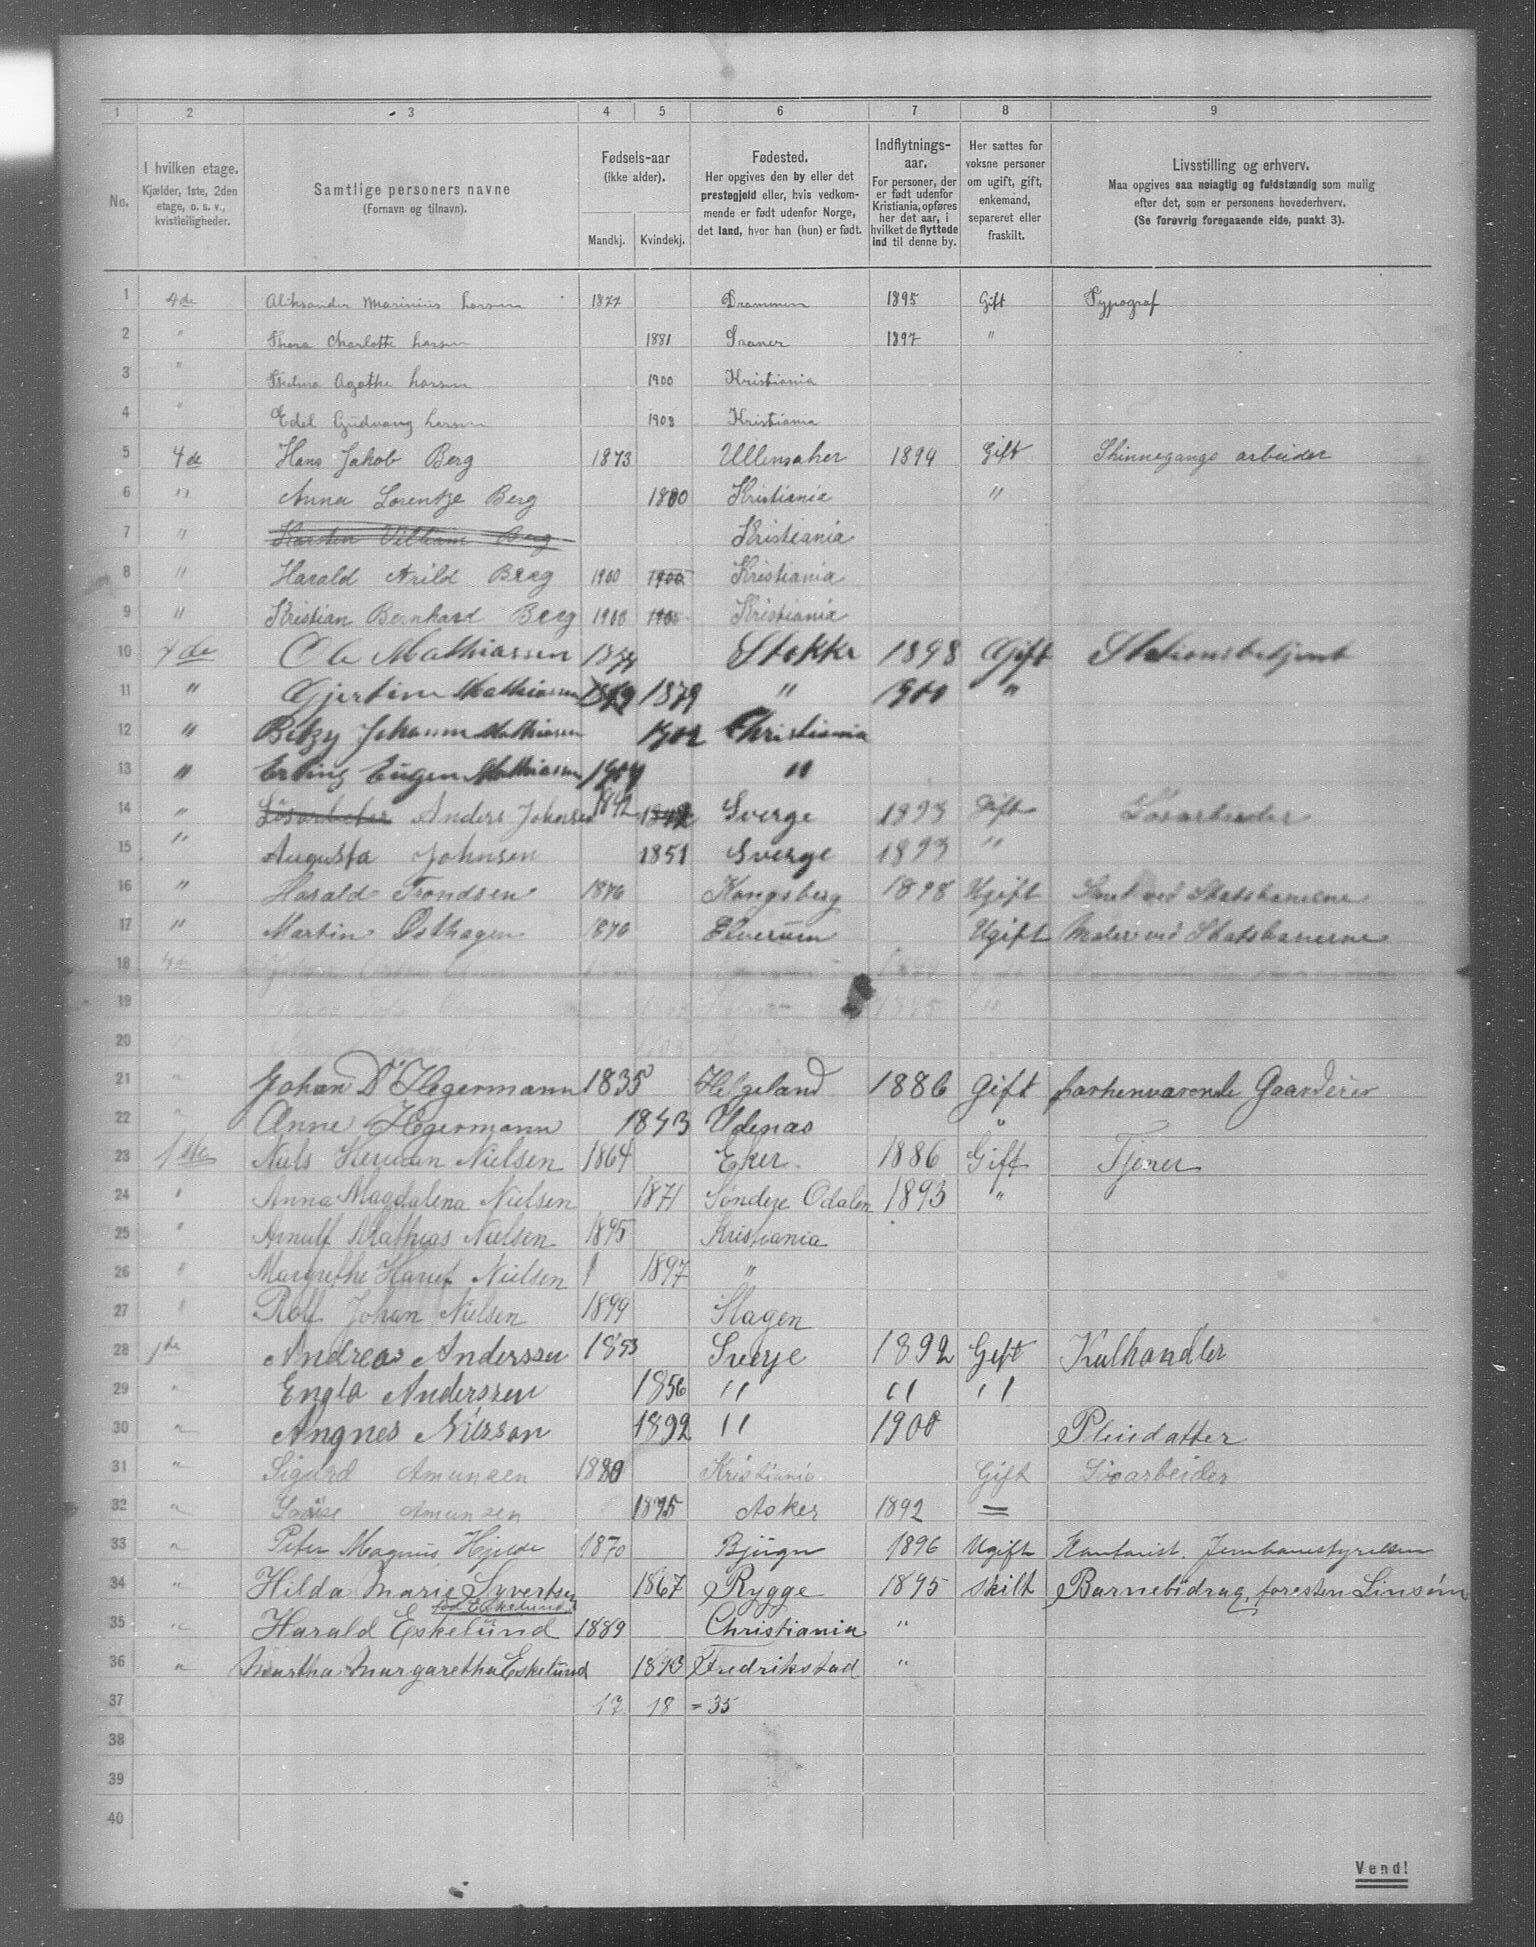 1 2 3 4 5 6 7 8 9
No.
I hvilken etage.
Kjælder, 1ste, 2den
etage, o. s. v.,
kvistleiligheder.
Samtlige personers navne
(Fornavn og tilnavn).
Fødsels-aar
(ikke alder).
Mandkj. Kvindekj.
Fødested.
Her opgives den by eller det
prestegjeld eller, hvis vedkom-
mende er født udenfor Norge,
det land, hvor han (hun) er født.
Indflytnings-
aar.
For personer, der
er født udenfor
Kristiania, opføres
her det aar, i
hvilket de flyttede
ind til denne by.
Her sættes for
voksne personer
om ugift, gift,
enkemand,
separeret eller
fraskilt.
Livsstilling og erhverv.
Maa opgives saa nøiagtig og fuldstændig som mulig
efter det, som er personens hovederhverv.
(Se forøvrig foregaaende side, punkt 3).
1 4de Aliksander Marinius Larsen 1877 Drammen 1895 Gift Typograf
2 " Thora Charlotte Larsen 1881 1897 "
3 " Thelma Agathe Larsen 1900 Kristiania
4 " Edel Gudvang Larsen 1903 Kristiania
5 4de Hans Jakob Berg 1873 Ullensaker 1894 Gift Skinnegangs arbeider
6 " Anna Lorentze Berg 1880 Kristiania "
7 " Karsten Vilhiam Berg Kristiania
8 " Harald Arild Berg 1900 1900 Kristiania
9 " Kristian Bernhard Berg 1900 1900 Kristiania
10 4de Ole Mathiassen 1874 Stokke 1898 Gift Stationsbetjent
11 " Gjertine Mathiassen 1879 1879 " 1900 "
12 " Betzy Johanne Mathiasen 1902 Christiania
13 " Erling Eugen Mathiassen 1904 "
14 " Lösarbeter Anders Johnsen 1842 1842 Sverge 1893 Gift Løsarbeider
15 " Augusta Johnsen 1851 Sverge 1893 "
16 " Harald Trondsen 1876 Kongsberg 1898 Ugift Smed ved Statsbanerne
17 " Martin Østhagen 1876 Elverum Ugift Maler ved Statsbanerne
18 4de
19 1895 "
20
21 " Johan D. Hegermann 1835 Helgeland 1886 Gift forhenværende Gaardeier
22 " Anne Hegermann 1843 Udenas "
23 1ste Niels Herman Nielsen 1864 Eker 1886 Gift Tjener
24 " Anna Magdalena Nielsen 1871 Søndre Odalen 1893 "
25 " Arnulf Mathias Nielsen 1895 Kristiania
26 " Margrethe Harriet Nielsen 1897 "
27 " Rolf Johan Nielsen 1899 Slagen
28 1ste Andreas Anderssen 1853 Sverje 1892 Gift Kulhandler
29 " Engla Anderssen 1856 " " "
30 " Angnes Nilsson 1892 " 1900 Pleiedatter
31 " Sigurd Amunsen 1880 Kristiania Gift Løsarbeider
32 " Amunsen 1875 Asker 1892 =
33 " Peter Magnus Hjelde 1870 Bjugn 1896 Ugift Kontorist. Jernbanestyrelsen
34 " Hilda Marie Syvertsen 1867 Rygge 1895 skilt Barnebidrag, foresten Linsöm
fød Eskelund
35 " Harald Eskelund 1889 Christiania "
36 " Martha Margaretha Eskelund 1893 Fredrikstad "
37 17 18 = 35
38
39
40
Vend!